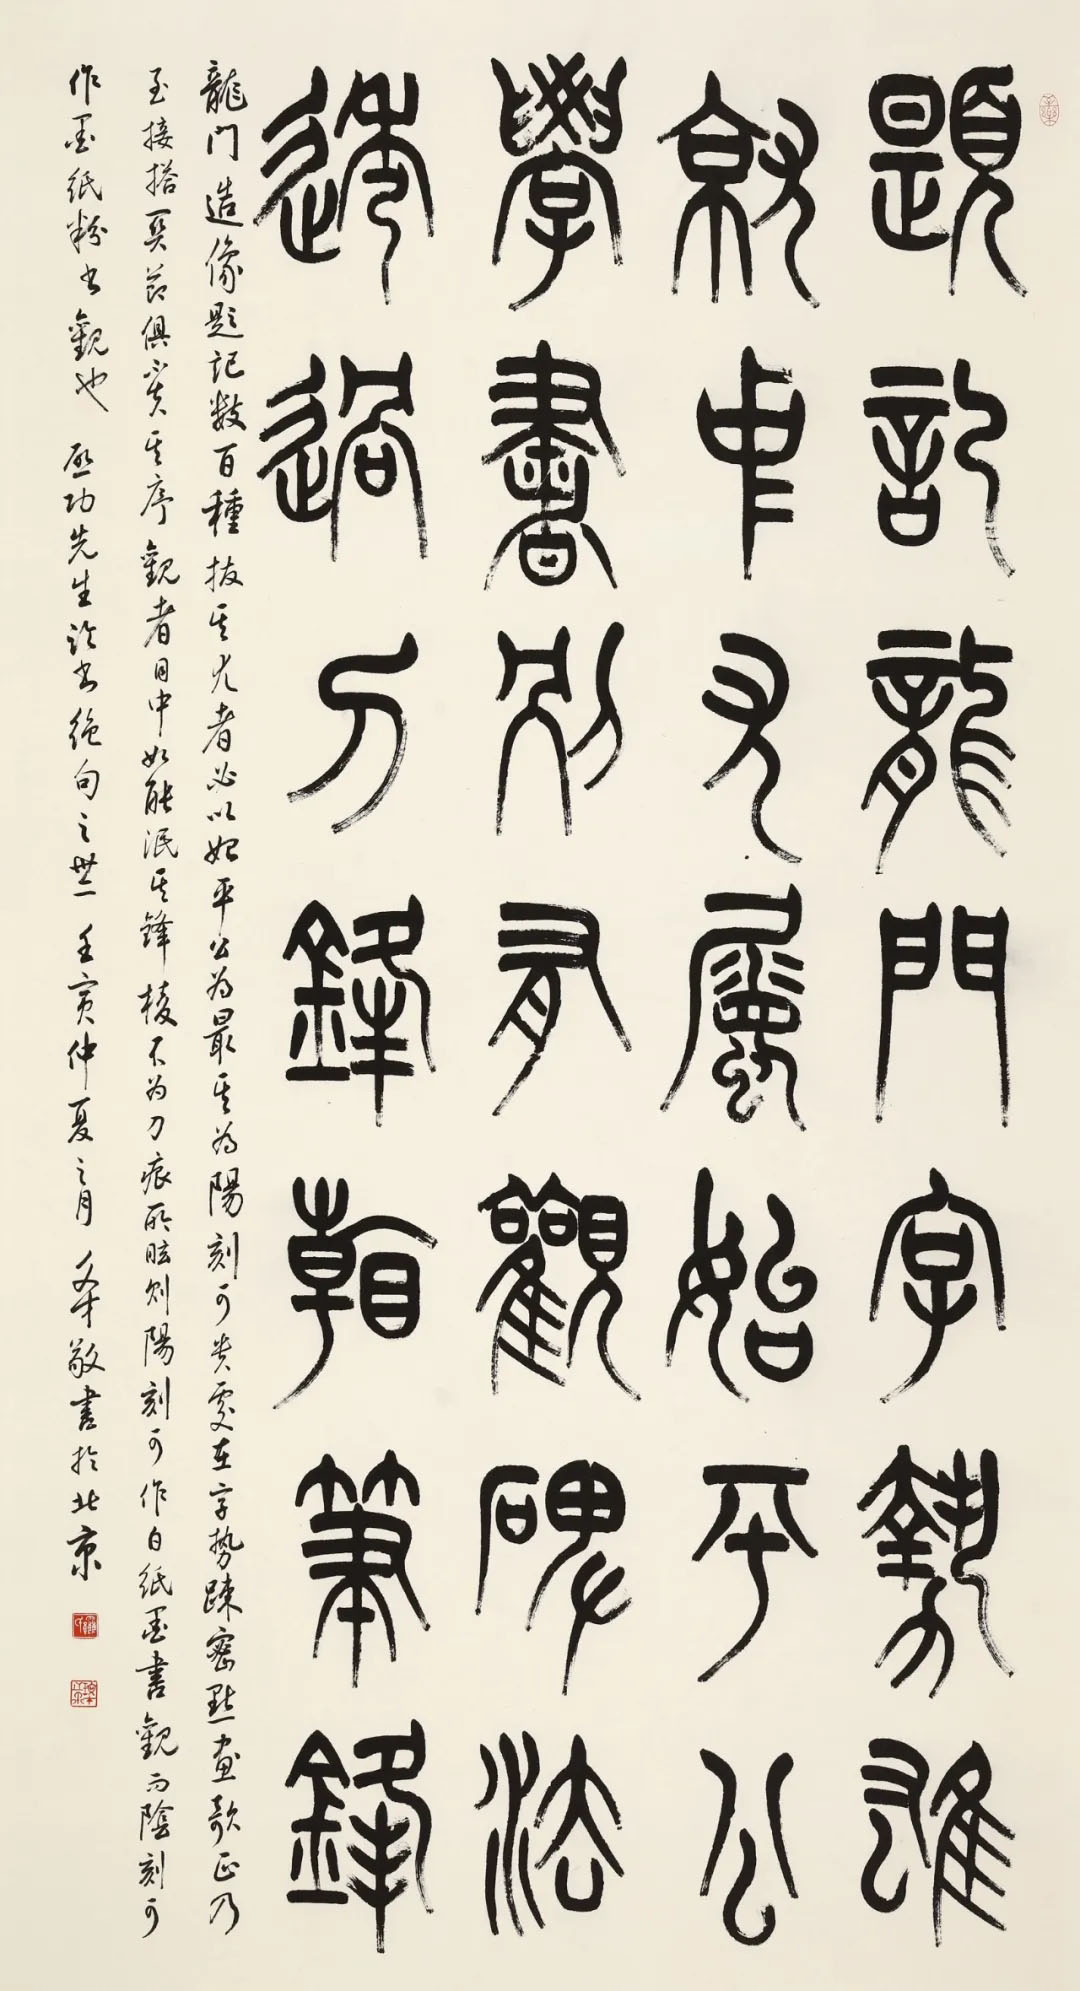 題記龍門字勢雄
就中尤屬始平公
學書別有觀碑法
透過刀鋒看筆鋒
龍門造像題記數百種拔其尤者必以始平公為最其為陽刻可貴處在字勢疎密點畫欹正乃
至接搭關節俱不失其序觀者目中如能泯其鋒棱不為刀痕所眩則陽刻可作白紙墨書觀而陰刻可
作墨紙粉書觀也 啟功先生論書絕句之卅二 壬寅仲夏之月 敬書於北京